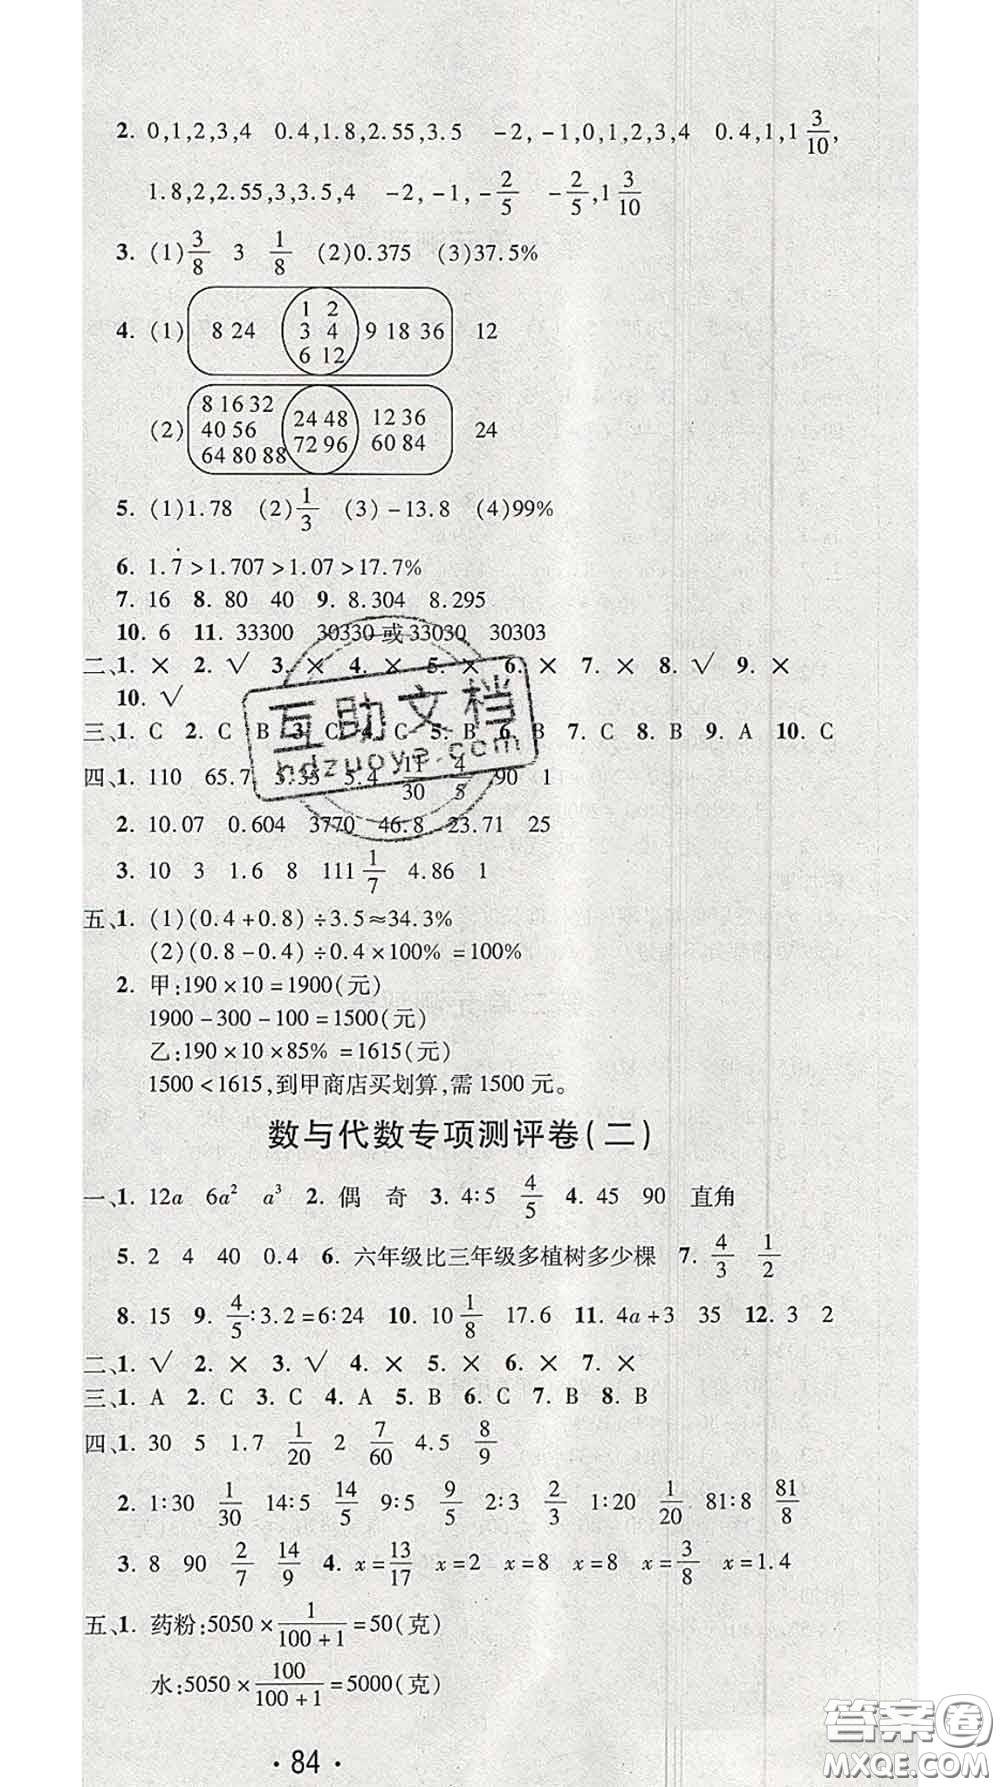 2. 0,1,2,3,4 0.4,1.8,2.55,3.5 -2,-1,0,1,2,3,4 0.4,1,1 3/10,
1.8,2,2.55,3,3.5,4 -2,-1,-2/5 -2/5,1 3/10
3. (1)3/8 3 1/8 (2)0.375 (3)37.5%
4. (1) 8 24 1 2 3 4 6 12 9 18 36 12
(2) 8 16 32 40 56 64 80 88 24 48 72 96 12 36 60 84 24
5. (1)1.78 (2)1/3 (3)-13.8 (4)99%
6. 1.7̇>1.707>1.07>17.7%
7. 16 8. 80 40 9. 8.304 8.295
10. 6 11. 33300 30330或33030 30303
二、1. × 2. √ 3. × 4. × 5. × 6. × 7. × 8. √ 9. ×
10. √
三、1. C 2. C B 3. C 4. C 5. B 6. B 7. C 8. B 9. A 10. C
四、1. 110 65.7 5.35 5.4 11/30 4/5 90 1
2. 10.07 0.604 3770 46.8 23.71 25
3. 10 3 1.6 8 111 1/7 4.86 1
五、1. (1)(0.4+0.8)÷3.5≈34.3%
(2)(0.8-0.4)÷0.4×100%=100%
2. 甲:190×10=1900(元)
1900-300-100=1500(元)
乙:190×10×85%=1615(元)
1500<1615,到甲商店买划算,需1500元。
数与代数专项测评卷(二)
一、1. 12a 6a² a³ 2. 偶 奇 3. 4:5 4/5 4. 45 90 直角
5. 2 4 40 0.4 6. 六年级比三年级多植树多少棵 7. 4/3 1/2
8. 15 9. 4/5:3.2=6:24 10. 10 1/8 17.6 11. 4a+3 35 12. 3 2
二、1. √ 2. × 3. √ 4. × 5. × 6. × 7. ×
三、1. A 2. C 3. C 4. A 5. B 6. C 7. B 8. B
四、1. 30 5 1.7 1/20 2 7/60 4.5 8/9
2. 1:30 1/30 14:5 14/5 9:5 9/5 2:3 2/3 1:20 1/20 81:8 81/8
3. 8 90 2/7 14/9 4. x=13/17 x=2 x=8 x=8 x=3/8 x=1.4
五、1. 药粉:5050×1/(100+1)=50(克)
水:5050×100/(100+1)=5000(克)
·84·
互助文档
hdzuoye.com
答案圈
MXQE.COM